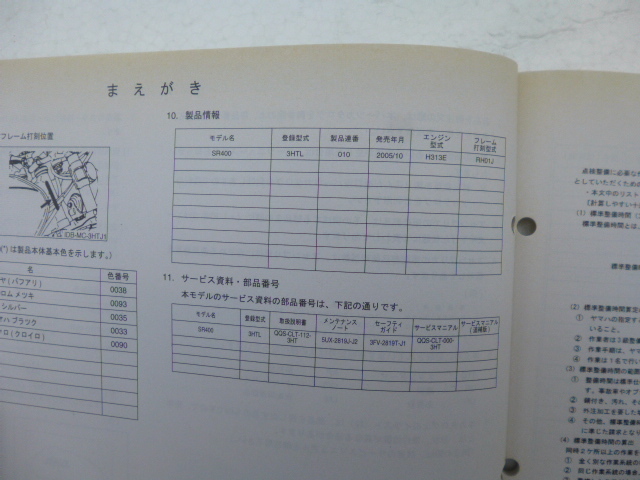 まえがき
フレーム打刻位置
DB-MC-3HTJ1
(*) は製品本体基本色を示します。)
名 色番号
(パフアリ) 0038
ロム メッキ 0093
シルバー 0035
ブラック 0033
(クロイロ) 0090
10. 製品情報
モデル名 登録型式 製品連番 発売年月 エンジン型式 フレーム打刻型式
SR400 3HTL 010 2005/10 H313E RH01J
11. サービス資料・部品番号
本モデルのサービス資料の部品番号は、下記の通りです。
モデル名 登録型式 取扱説明書 メンテナンスノート セーフティガイド サービスマニュアル サービスマニュアル(追補版)
SR400 3HTL QQS-CLT-112-3HT 5UX-2819J-J2 3FV-2819T-J1 QQS-CLT-000-3HT
点検整備に必要な
としていただくため
・本文中のリスト
[計算しやすい十
(1) 標準整備時間
標準整備時間とは、
標準整備時間
(2) 標準整備時間算定
① ヤマハの指定す
いること。
② 作業者は3級整備
③ 作業手順は、サ
④ 作業は1名で行い
(3) 標準整備時間の範囲
① 整備時間は標準仕
す。事故車やオプ
② 錆付き、汚れ、そ
③ 外注加工を要した
④ その他、標準整備時間
に準じた請求となり
(4) 標準整備時間の累合
同時2ケ所以上の作業を
① 全く別な作業系統の
② 同じ作業系統の場合、